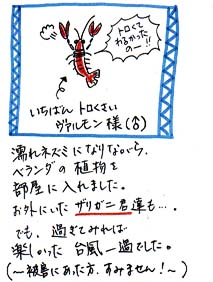 トロくさ
わるかった
のー!!
いちばんトロくさい
ヴァルモン様(♂)
濡れネズミになりながら、
ベランダの植物を
部屋に入れました。
お外にいたザリガニ君達も…。
でも、過ぎてみれば
楽しかった台風一過でした。
(~被害にあった方、すみません!~)